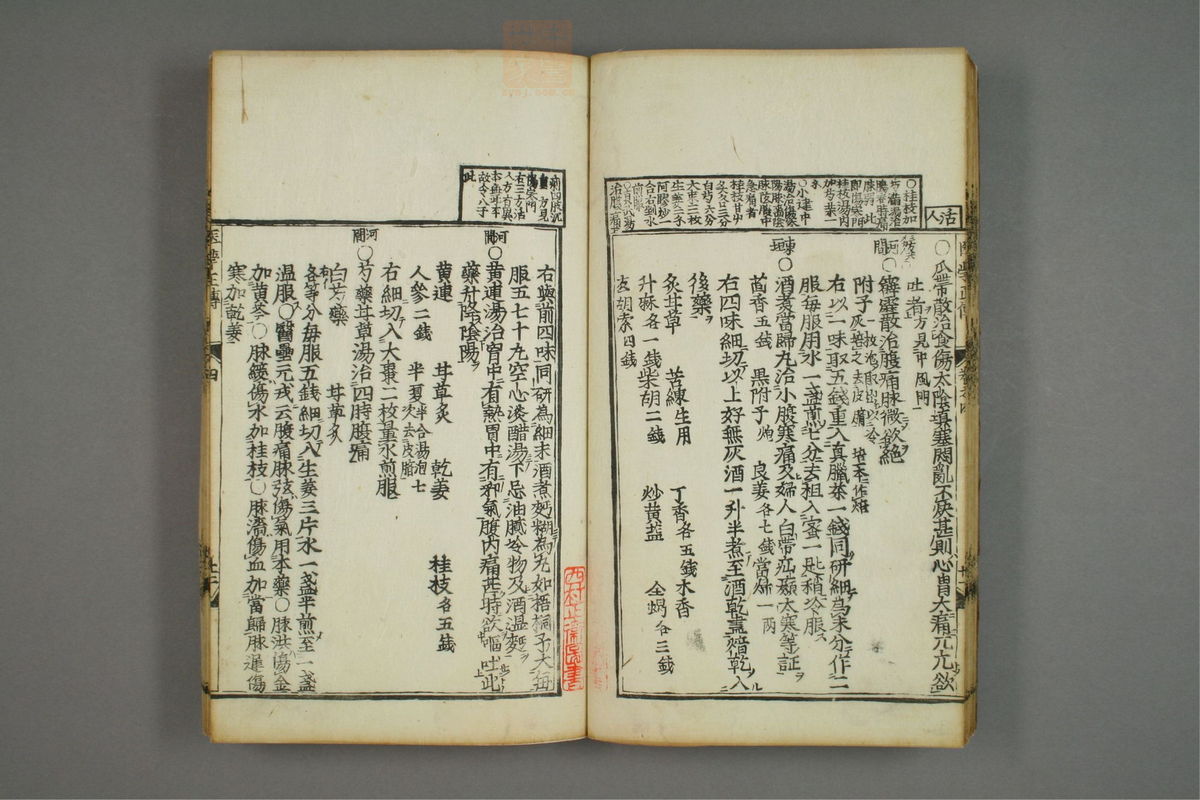 活人
○桂枝加
○小建中
桂枝甘艸
大棗三枚
生姜二寸
阿膠炒一
合右剉水
○瓜蒂散治食傷太陰填塞悶亂不快甚則心胃大痛兀兀欲
吐者方見中風門
河間
○霹靂散治腹痛脉微欲絶
附子
右以一味取五錢重入真臘茶一錢同研細為末分作二
服每服用水一盞煎七分去柤入蜜一匙稍冷服
東垣
○酒煮當歸丸治小腹寒痛及婦人白帶疝瘕大寒等証
茴香五錢 黒附子炮 良姜各七錢 當歸一兩
右四味細切以上好無灰酒一升半煮至酒乾晝焙乾入
後藥
炙甘草 苦練生用 丁香各五錢 木香
升麻各一錢 柴胡二錢 炒黄盐 全蝎各三錢
玄胡索四錢
右與前四味同研為細末酒煮麪糊為丸如梧桐子大每
服五七十丸空心淡醋湯下忌油膩冷物及酒温麪
河間
○黄連湯治胃中有熱胃中有邪氣腹内痛甚時欲嘔吐此
藥升降陰陽
黄連 甘草炙 乾姜 桂枝各五錢
人參二錢 半夏半合湯泡七次去皮臍
右細切入大棗二枚量水煎服
河間
○芍藥甘草湯治四時腹痛
白芍藥 甘草炙
各等分每服五錢細切入生姜三片水一盞半煎至一盞
温服○醫壘元戎云腹痛脉弦傷氣用本藥○脉洪傷金
加黄芩○脉緩傷水加桂枝○脉濇傷血加當歸脉遲傷
寒加乾姜